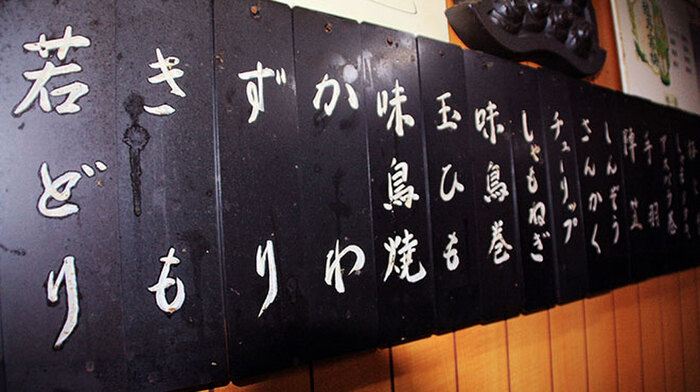 アスパラ巻
手羽
陣笠
しんぞう
さんかく
チューリップ
しゃもねぎ
味鳥巻
玉ひも
味鳥焼
かわ
ずり
きも
若どり